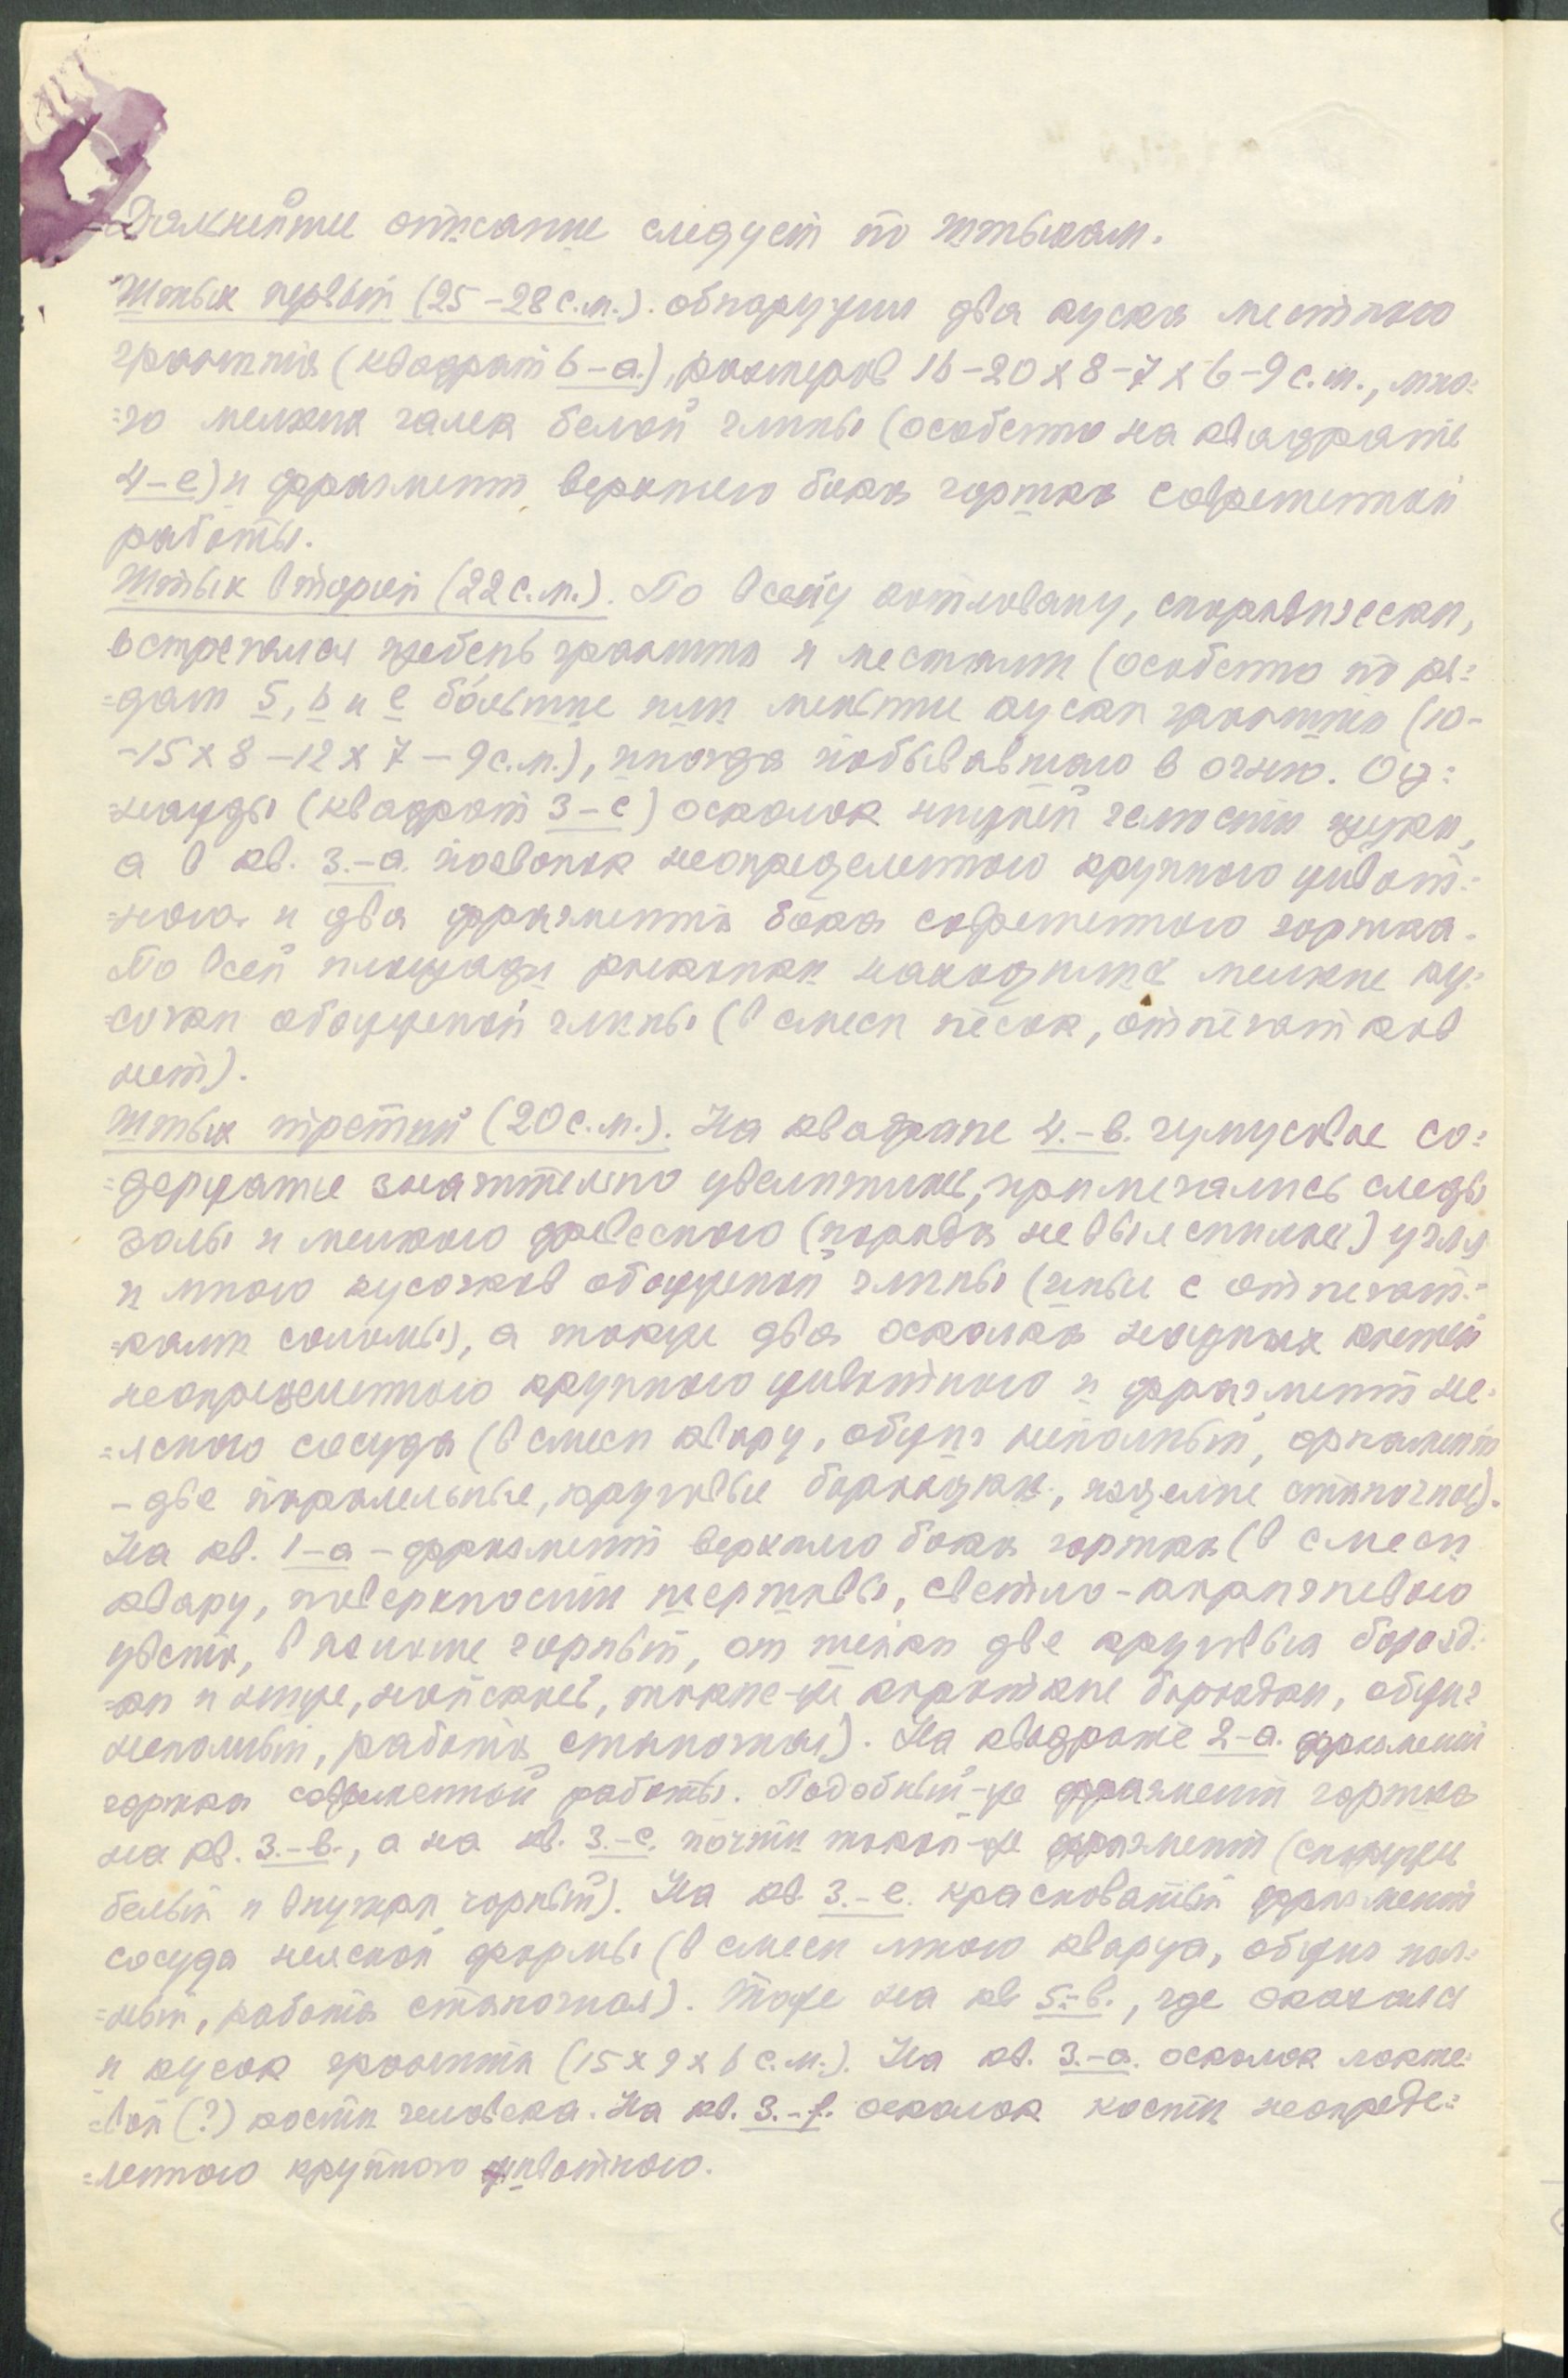 Дальнейшее описание следует по штыкам.
Штык первый (25-28 с.м.). обнаружил два куска местного
гранита (квадрат 6-а.), размеров 16-20 х 8-7 х 6-9 с.м., мно=
=го мелких галек белой глины (особенно на квадрате
4-е) и фрагмент верхнего бока горшка современной
работы.
Штык второй (22 с.м.). По всему котловану, спорадически,
встречался щебень гранита и местами (особенно по ря=
=дам 5, 6 и е большие или меньшие куски гранита (10-
-15 х 8-12 х 7-9 с.м.), иногда побывавшего в огне. Од=
=нажды (квадрат 3-с) осколок нижней челюсти щуки,
а в кв. 3.-а. позвонок неопределенного крупного живот=
=ного и два фрагмента бока современного горшка.
По всей площади раскопки находились мелкие ку=
=сочки обожженой глины (в смеси песок, отпечатков
нет).
Штык третий (20 с.м.). На квадрате 4.-в. гумусовое со=
=держание значительно увеличилось, примечались следы
золы и мелкого древесного (порода не выяснилась) угля
и много кусочков обожженой глины (иные с отпечат=
=ками соломы), а также два осколка ножных костей
неопределенного крупного животного и фрагмент не=
=ясного сосуда (в смеси кварц, обжиг неполный, орнамент
- две паралельные, круговые бороздки, изделие станочное).
На кв. 1-а - фрагмент верхнего бока горшка (в смеси
кварц, поверхности шерховы, светло-коричневого
цвета, в изломе чорный, от шейки две круговыя борозд=
=ки и ниже, наискось, такие-же короткие бороздки, обжиг
неполный, работа станочная). На квадрате 2-а. фрагмент
горшка современной работы. Подобный-же фрагмент горшка
на кв. 3.-в., а на кв. 3.-с. почти такой-же фрагмент (снаружи
белый и внутри чорный). На кв. 3.-е. красноватый фрагмент
сосуда неясной формы (в смеси много кварца, обжиг пол=
=ный, работа станочная). Тоже на кв. 5-в., где оказался
и кусок гранита (15 х 9 х 6 с.м.). На кв. 3.-а. осколок локте=
=вой (?) кости человека. На кв. 3.-f. осколок кости неопреде=
=ленного крупного животного.